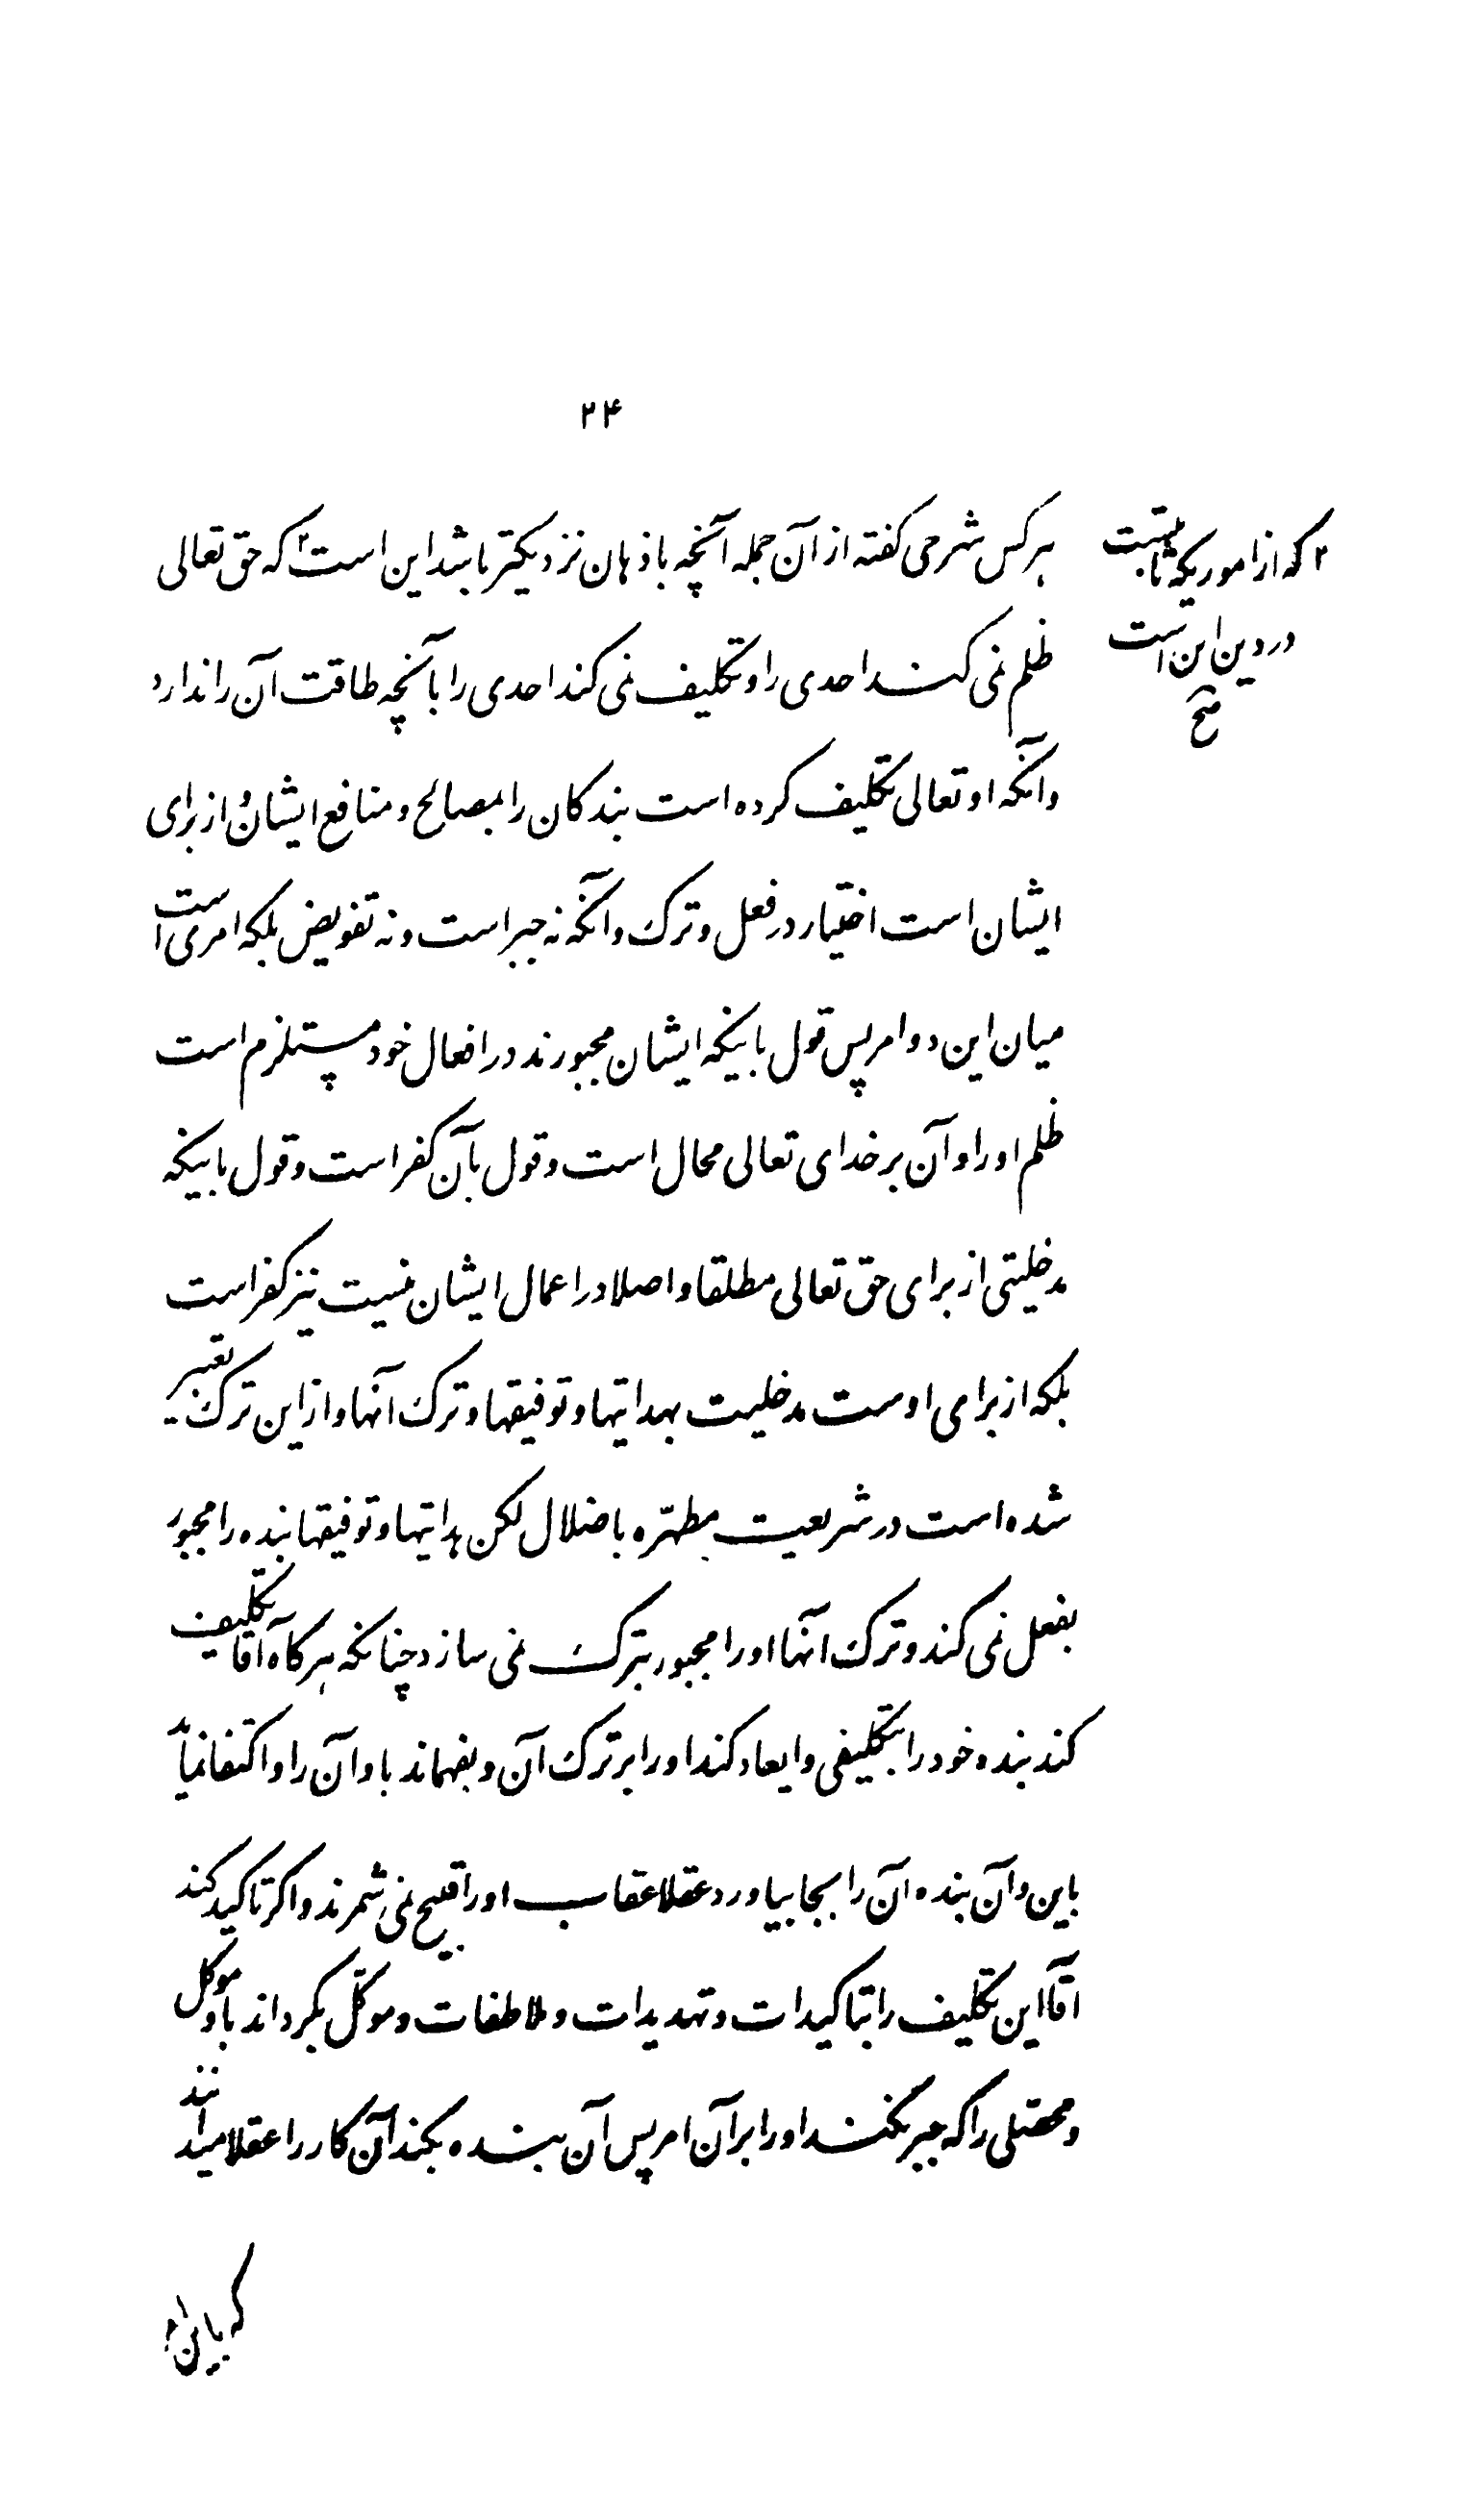 ۲۴
هر کس شرحی کفته از آن جمله آنچه باذهان نزدیکتر باشد این است۲ که حق تعالی
ظلم نمی کند احدی را و تکلیف نمی کند احدی را بآنچه طاقت آن را ندارد
و آنکه او تعالی تکلیف کرده است بندکان را بمصالح و منافع ایشان و از برای
ایشان است اختیار در فعل و ترک و آنکه نه جبر است و نه تفویض بلکه امری است
میان این دو امر پس قول باینکه ایشان مجبورند در افعال خود مستلزم است
ظلم او را و آن بر خدای تعالی محال است و قول بآن کفر است و قول باینکه
مدخلیتی از برای حق تعالی مطلقا و اصلا در اعمال ایشان نیست نیز کفر است
بلکه از برای اوست مدخلیت بهدایتها و توفیقها و ترک آنها و از این ترک تعبیر
شده است در شریعت مطهّره باضلال لکن هدایتها و توفیقها بنده را مجبور
بفعل نمی کند و ترک آنها او را مجبور بترک نمی سازد چنانکه هر کاه آقا تکلیف
کند بنده خود را بتکلیفی و ایعاد کند او را بر ترک آن و بفهماند باو آن را و اکتفا نماید
باین و آن بنده آن را بجا بیاورد عقلا عقاب او را قبیح نمی شمرند و اکر تاکید کند
آقا این تکلیف را بتاکیدات و تهدیدات و ملاطفات و موکّل بکرداند باو موکل
و محصّلی را که جبر نکند او را بر آن امر پس آن بنده بکند آن کار را عقلا میدانند
۲ که از اموریکه ثابتست
در دین این است
صح
که بآن